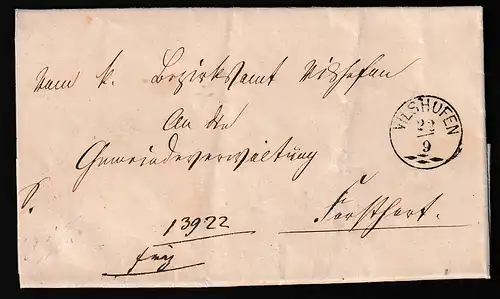 Vom k. Bezirksamt Vilshofen
VILSHOFEN
22
9
An die
Gemeindeverwaltung
13922
Forsthart.